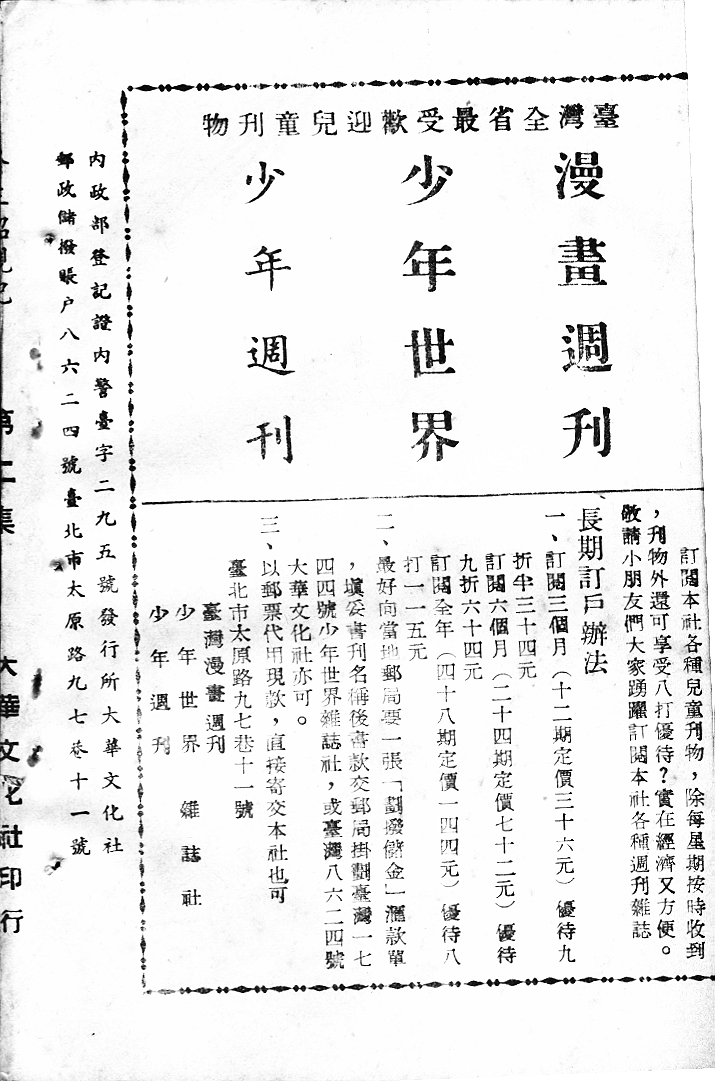 臺灣全省最受歡迎兒童刊物
漫畫週刊
少年世界
少年週刊
訂閱本社各種兒童刊物，除每星期按時收到
，刊物外還可享受八打優待？實在經濟又方便。
敬請小朋友們大家踴躍訂閱本社各種週刊雜誌
長期訂戶辦法
一、訂閱三個月（十二期定價三十六元）優待九
折半三十四元
訂閱六個月（二十四期定價七十二元）優待
九折六十四元
訂閱全年（四十八期定價一四四元）優待八
打一一五元
二、最好向當地郵局要一張「劃撥儲金」滙款單
，塡妥書刊名稱後書款交郵局掛劃臺灣一七
四四號少年世界雜誌社，或臺灣八六二四號
大華文化社亦可。
三、以郵票代用現款，直接寄交本社也可
臺北市太原路九七巷十一號
臺灣漫畫週刊
少年世界 雜誌社
少年週刊
內政部登記證內警臺字二九五號發行所大華文化社
郵政儲撥賬户八六二四號臺北市太原路九七巷十一號
大華文化社印行